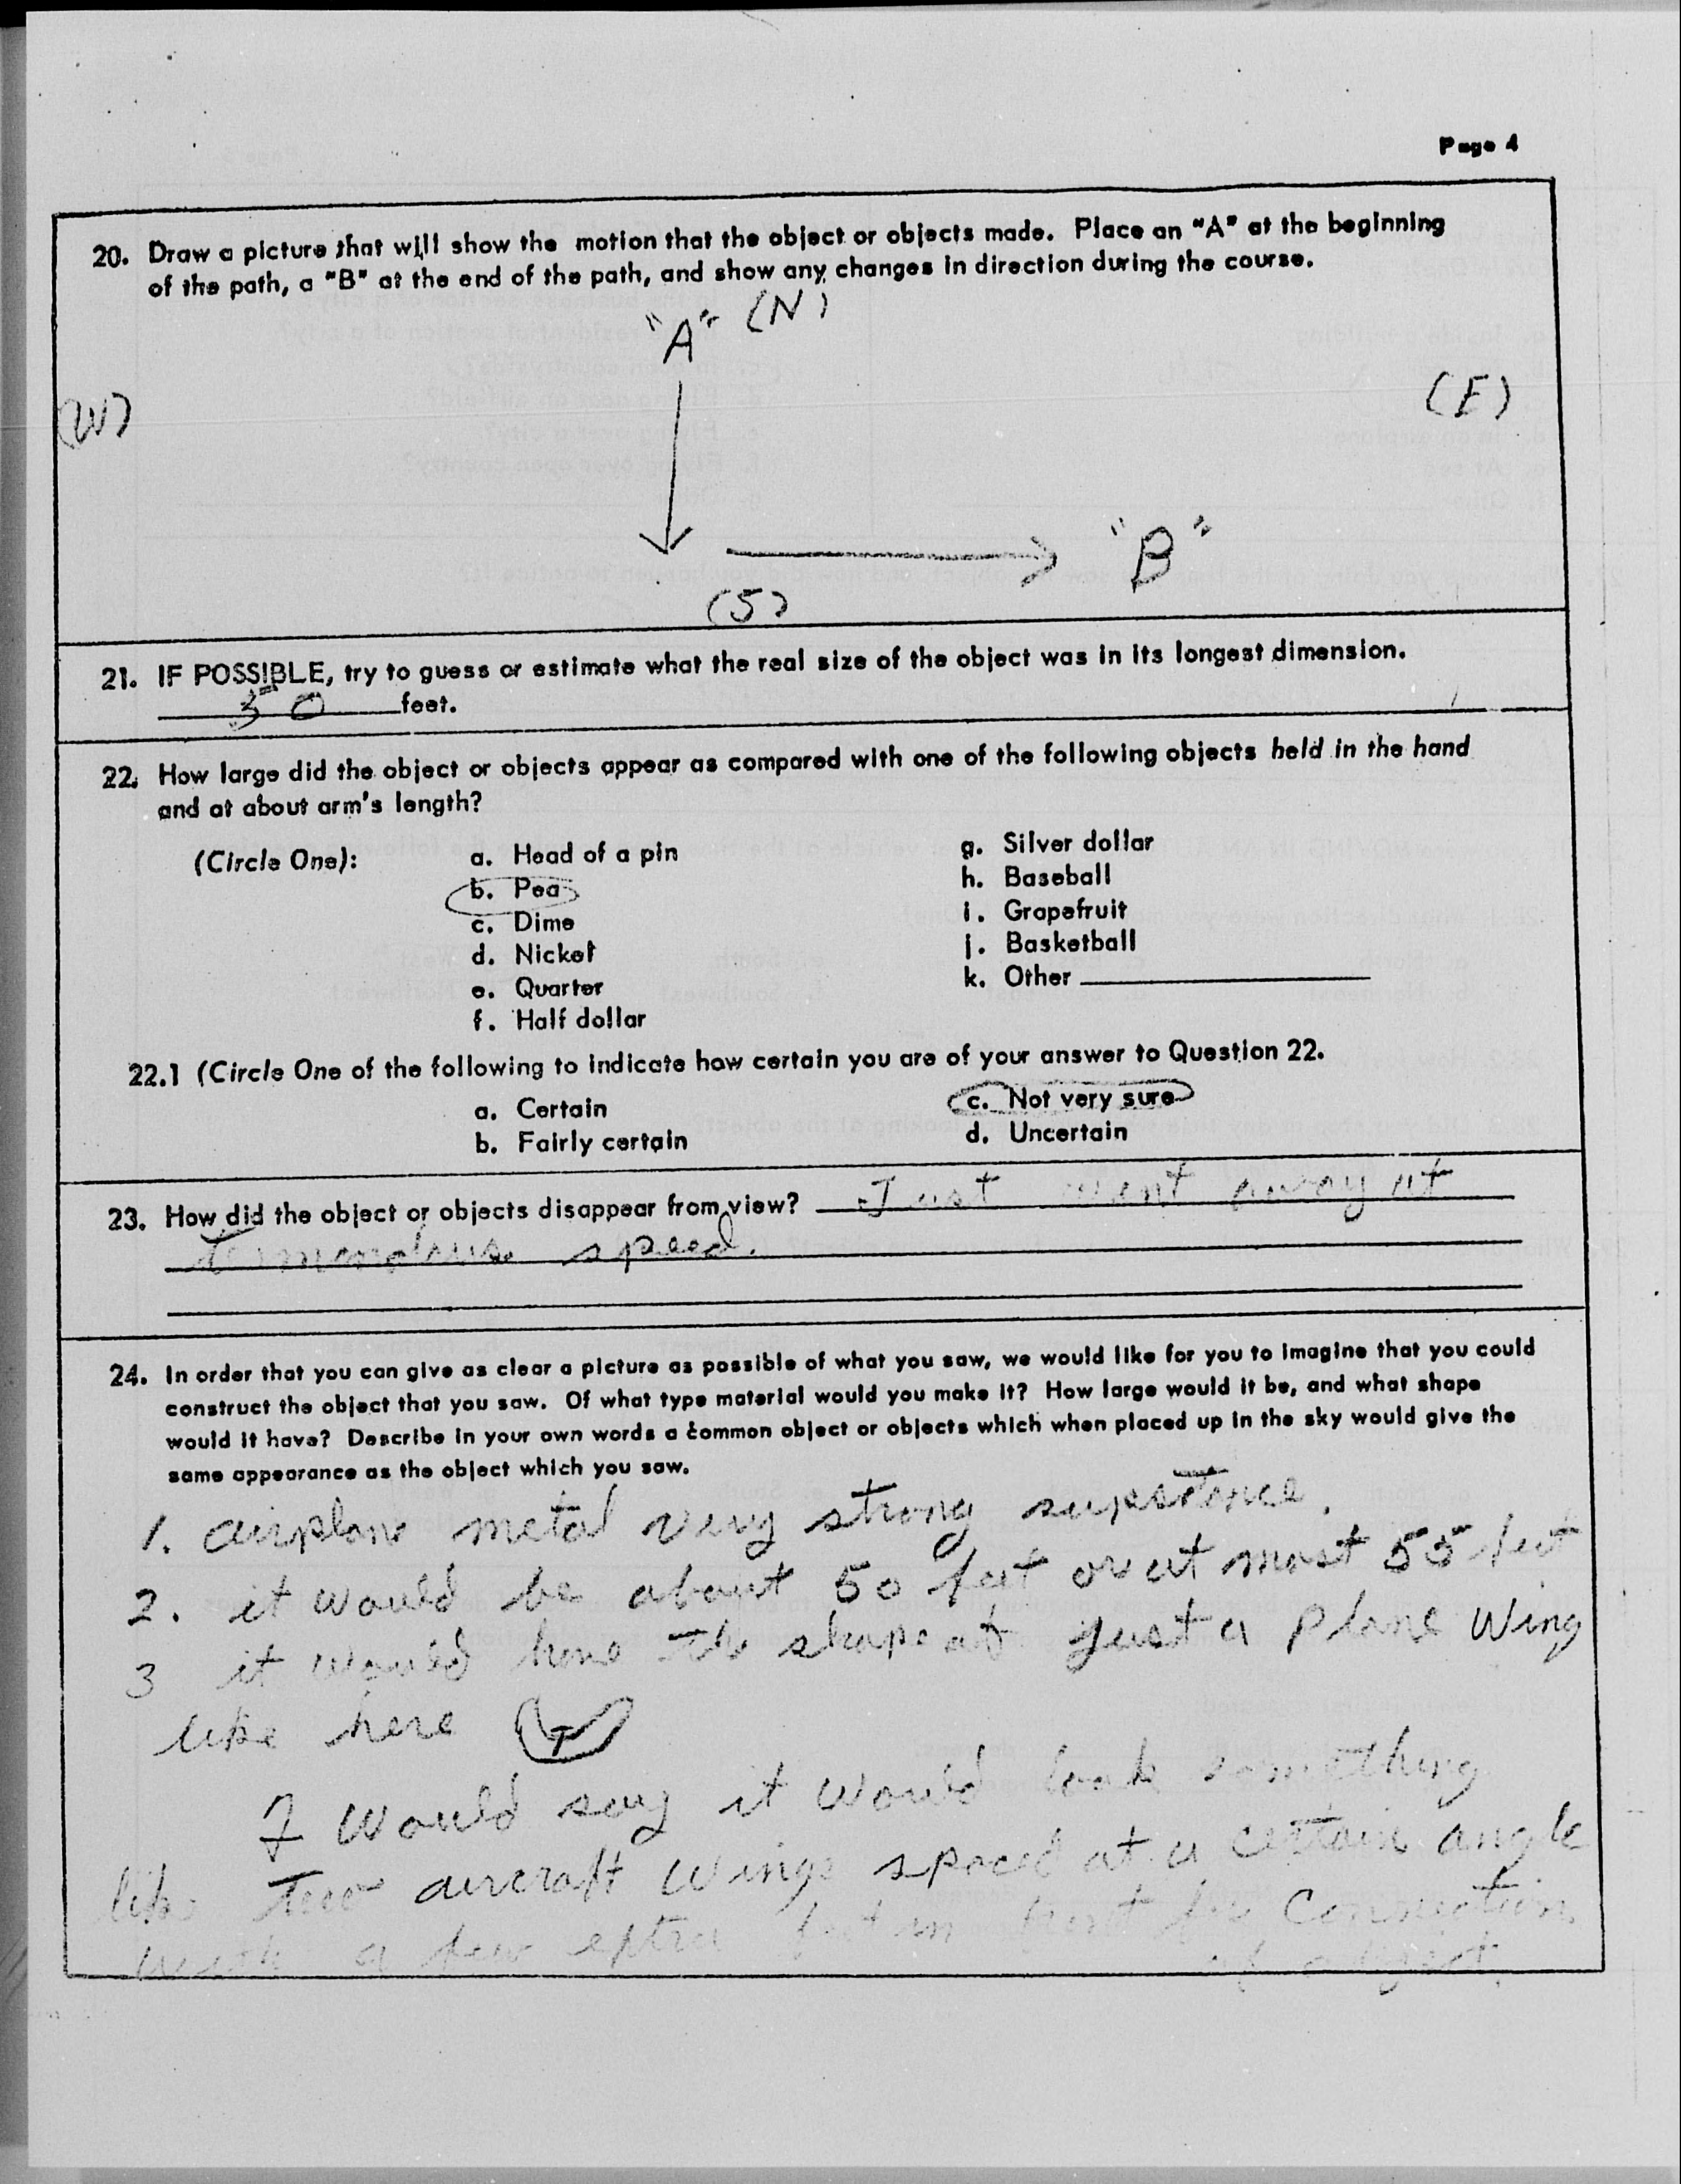 Page 4
20. Draw a picture that will show the motion that the object or objects made. Place an "A" at the beginning
of the path, a "B" at the end of the path, and show any changes in direction during the course.
"A" (N)
(W)
(E)
"B"
(S)
21. IF POSSIBLE, try to guess or estimate what the real size of the object was in its longest dimension.
50 feet.
22. How large did the object or objects appear as compared with one of the following objects held in the hand
and at about arm's length?
(Circle One):
a. Head of a pin
b. Pea
c. Dime
d. Nickel
e. Quarter
f. Half dollar
g. Silver dollar
h. Baseball
i. Grapefruit
j. Basketball
k. Other
22.1 (Circle One of the following to indicate how certain you are of your answer to Question 22.
a. Certain
b. Fairly certain
c. Not very sure
d. Uncertain
23. How did the object or objects disappear from view? Just went away at
speed.
24. In order that you can give as clear a picture as possible of what you saw, we would like for you to imagine that you could
construct the object that you saw. Of what type material would you make it? How large would it be, and what shape
would it have? Describe in your own words a common object or objects which when placed up in the sky would give the
same appearance as the object which you saw.
1. airplane metal very strong
2. it would be about 50 feet or at most 55 feet
3 it would have the shape of just a plane wing
like here
I would say it would look something
like two aircraft wings spaced at a certain angle
with a few extra feet in front for connection
of object.